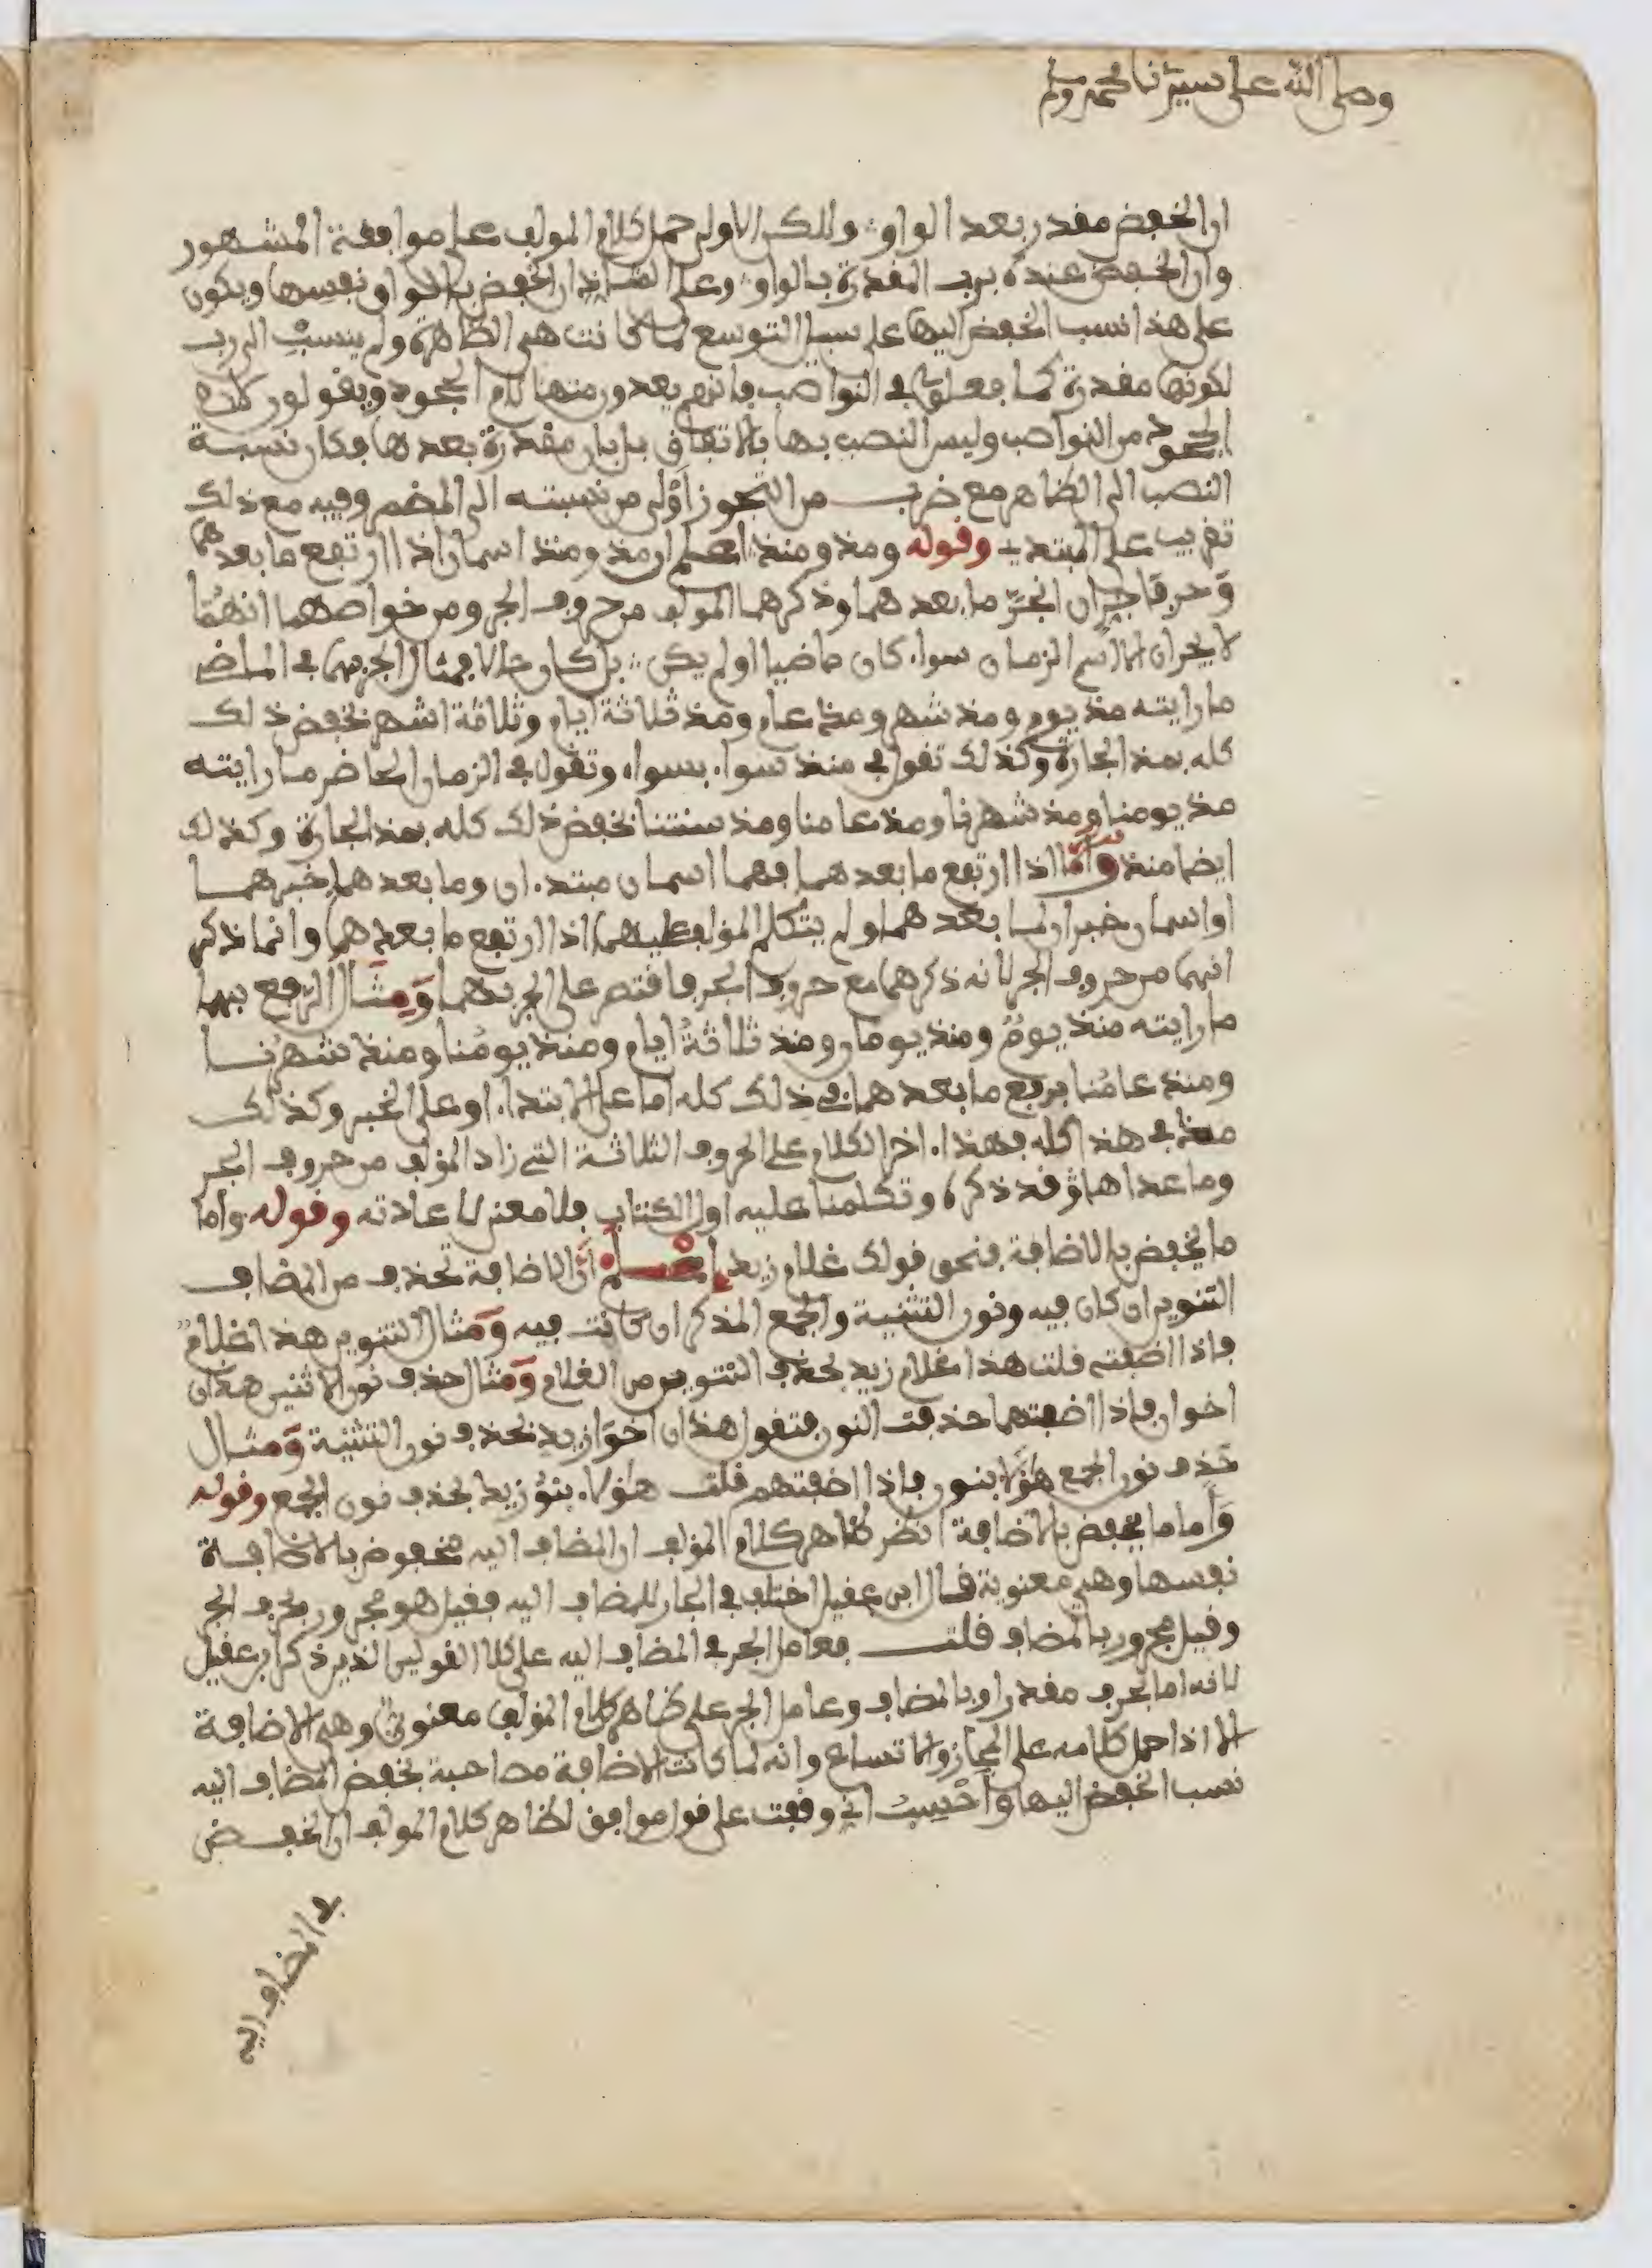 وصلى الله على سيدنا محمد وسلم
ان الخفض مقدر بعد الواو ولكن الاولى حمل كلام المولف على موافقة المشهور
وان الخفض عنده برب المقدرة بالواو وعلى ان الخفض بالواو نفسها ويكون
على هذا نسب الخفض اليها على سبيل التوسع لما كانت هي الظاهرة ولم ينسب الى رب
لكونها مقدرة كما فعلو في النواصب فانهم يعدون منها لام الجحود ويقولون لام
الجحود من النواصب وليس النصب بها بالاتفاق بل بان مقدرة بعدها فكان نسبة
النصب الى الظاهر مع ضرب من التجوز أولى من نسبته الى المضمر وفيه مع ذلك
تقريب على المبتدي وقوله ومذ ومنذ اعلم ان مذ ومنذ اسمان اذا ارتفع ما بعدهما
وَحرفا جر ان انجرّ ما بعدهما وذكرهما المولف من حروف الجر ومن خواصهما انهما
لا يجران الا اسم الزمان سواء كان ماضيا او لم يكن بل كان حالا فمثال الجر بهما في الماضي
ما رايته مذ يوم ومذ شهر ومذ عام ومذ ثلاثة ايام وثلاثة اشهر بخفض ذلك
كله بمذ الجارة وكذلك تقول في منذ سواء بسواء وتقول في الزمان الحاضر ما رايته
مذ يومنا ومذ شهرنا ومذ عامنا ومذ سنتنا بخفض ذلك كله بمذ الجارة وكذلك
ايضا منذ وأما اذا ارتفع ما بعدهما فهما اسمان مبتدءان وما بعدهما خبرهما
او اسمان خبران لما بعدهما ولم يتكلم المؤلف عليهما اذا ارتفع ما بعدهما وانما ذكر
انهما من حروف الجر لانه ذكرهما مع حروف الجر فاقتصر على الجر بهما وَمِثَال الرفع بهما
ما رايته منذ يومٌ ومنذ يومان ومنذ ثلاثةُ ايام ومنذ يومُنا ومنذ شهرُنا
ومنذ عامُنا برفع ما بعدهما في ذلك كله اما على الابتداء او على الخبر وكذلك
مذ في هذا كله فهذا ءاخر الكلام على الحروف الثلاثة التي زاد المؤلف من حروف الجر
وما عداها فقد ذكره وتكلمنا عليه اول الكتاب فلا معنى لاعادته وقوله واما
ما يخفض بالاضافة فنحو قولك غلام زيد اعلم أنّ الاضافة تحذف من المضاف
التنوين ان كان فيه ونون التثنية والجمع المذكر ان كانت فيه وَمثال التنوين هذا غلامٌ
فاذا اضفته قلت هذا غلام زيد بحذف التنوين من الغلام وَمثال حذف نون الاثنين هذان
اخوان فاذا اضفتهما حذفت النون فتقول هذان أخوَا زيد بحذف نون التثنية وَمثال
حَذف نون الجمع هؤلاء بنون فاذا اضفتهم قلت هؤلاء بنو زيد بحذف نون الجمع وقوله
وَأما ما يخفض بالاضافة انظر ظاهر كلام المؤلف ان المضاف اليه مخفوض بالاضافة
نفسها وهي معنوية قال ابن عقيل اختلف في الجار للمضاف اليه فقيل هو مجرور بحرف الجر
وقيل مجرور بالمضاف قلت فعامل الجر في المضاف اليه على كلا القولين الذين ذكر ابن عقيل
لانه اما بحرف مقدر او بالمضاف وعامل الجر على ظاهر كلام المؤلف معنوي وهي الاضافة
الا اذا حمل كلامه على المجاز والاتساع وانه لما كانت الاضافة مصاحبة بخفض المضاف اليه
نسب الخفض اليها وأحْسِبُ اني وقفت على قول موافق لظاهر كلام المولف ان الخفض
لا المضاف اليه